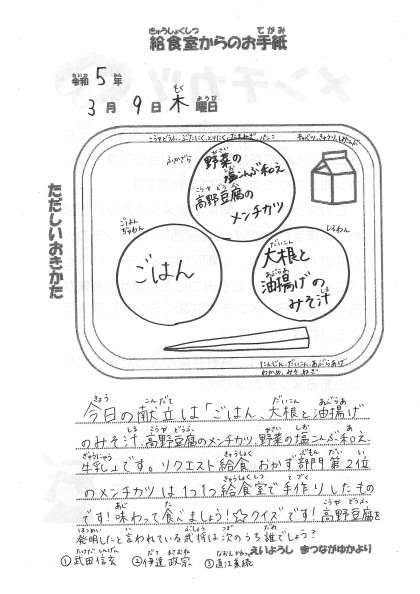 給食室からのお手紙
令和5年
3月9日木曜日
ただしいおきかた
こうやどうふ、ぶたにく、とりにく、たまねぎ、パンこ
キャベツ、きゅうり、しおこんぶ
ふかざら
野菜の
塩こんぶ和え
高野豆腐の
メンチカツ
ごはん
ちゃわん
ごはん
しるわん
大根と
油揚げの
みそ汁
にんじん、だいこん、あぶらあげ
わかめ、みそ、ねぎ
今日の献立は「ごはん、大根と油揚げ
のみそ汁、高野豆腐のメンチカツ、野菜の塩こんぶ和え、
牛乳」です。リクエスト給食 おかず部門 第2位
のメンチカツは1つ1つ給食室で手作りしたもの
です!味わって食べましょう!☆クイズです!高野豆腐を
発明したと言われている武将は次のうち誰でしょう?
①武田信玄 ②伊達政宗 ③直江兼続
えいようし まつながゆかより